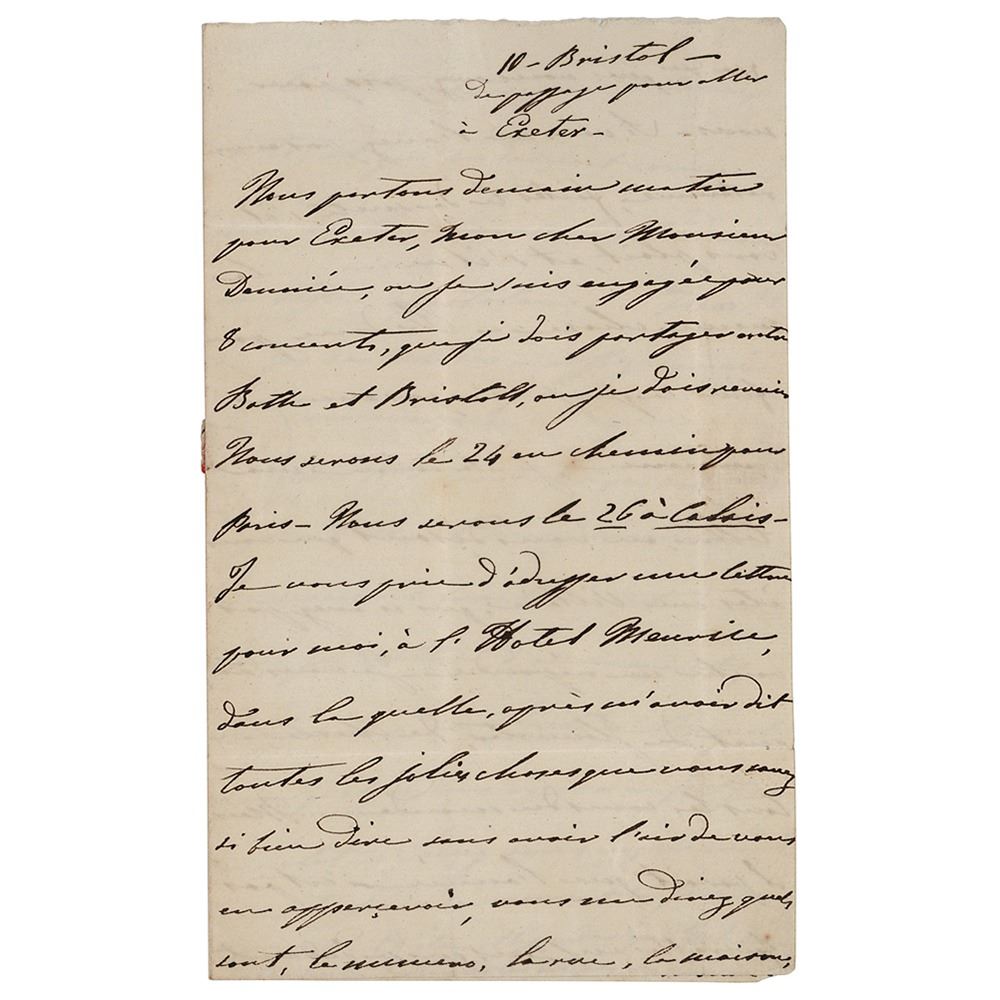 10 - Bristol -
De passage pour aller
à Exeter -
Nous partons demain matin
pour Exeter, mon cher Monsieur
Denniée, ou je suis engagée pour
8 concerts, que je dois partager entre
Bath et Bristoll, ou je dois revenir
Nous serons le 24 en chemin pour
Paris - Nous serons le 26 à Calais -
Je vous prie d'adresser une lettre
pour moi, à l'Hotel Meurice,
dans la quelle, après m'avoir dit
toutes les jolies choses que vous savez
si bien dire sans avoir l'air de vous
en appercevoir, vous me direz quels
sont, le numero, la rue, la maison,